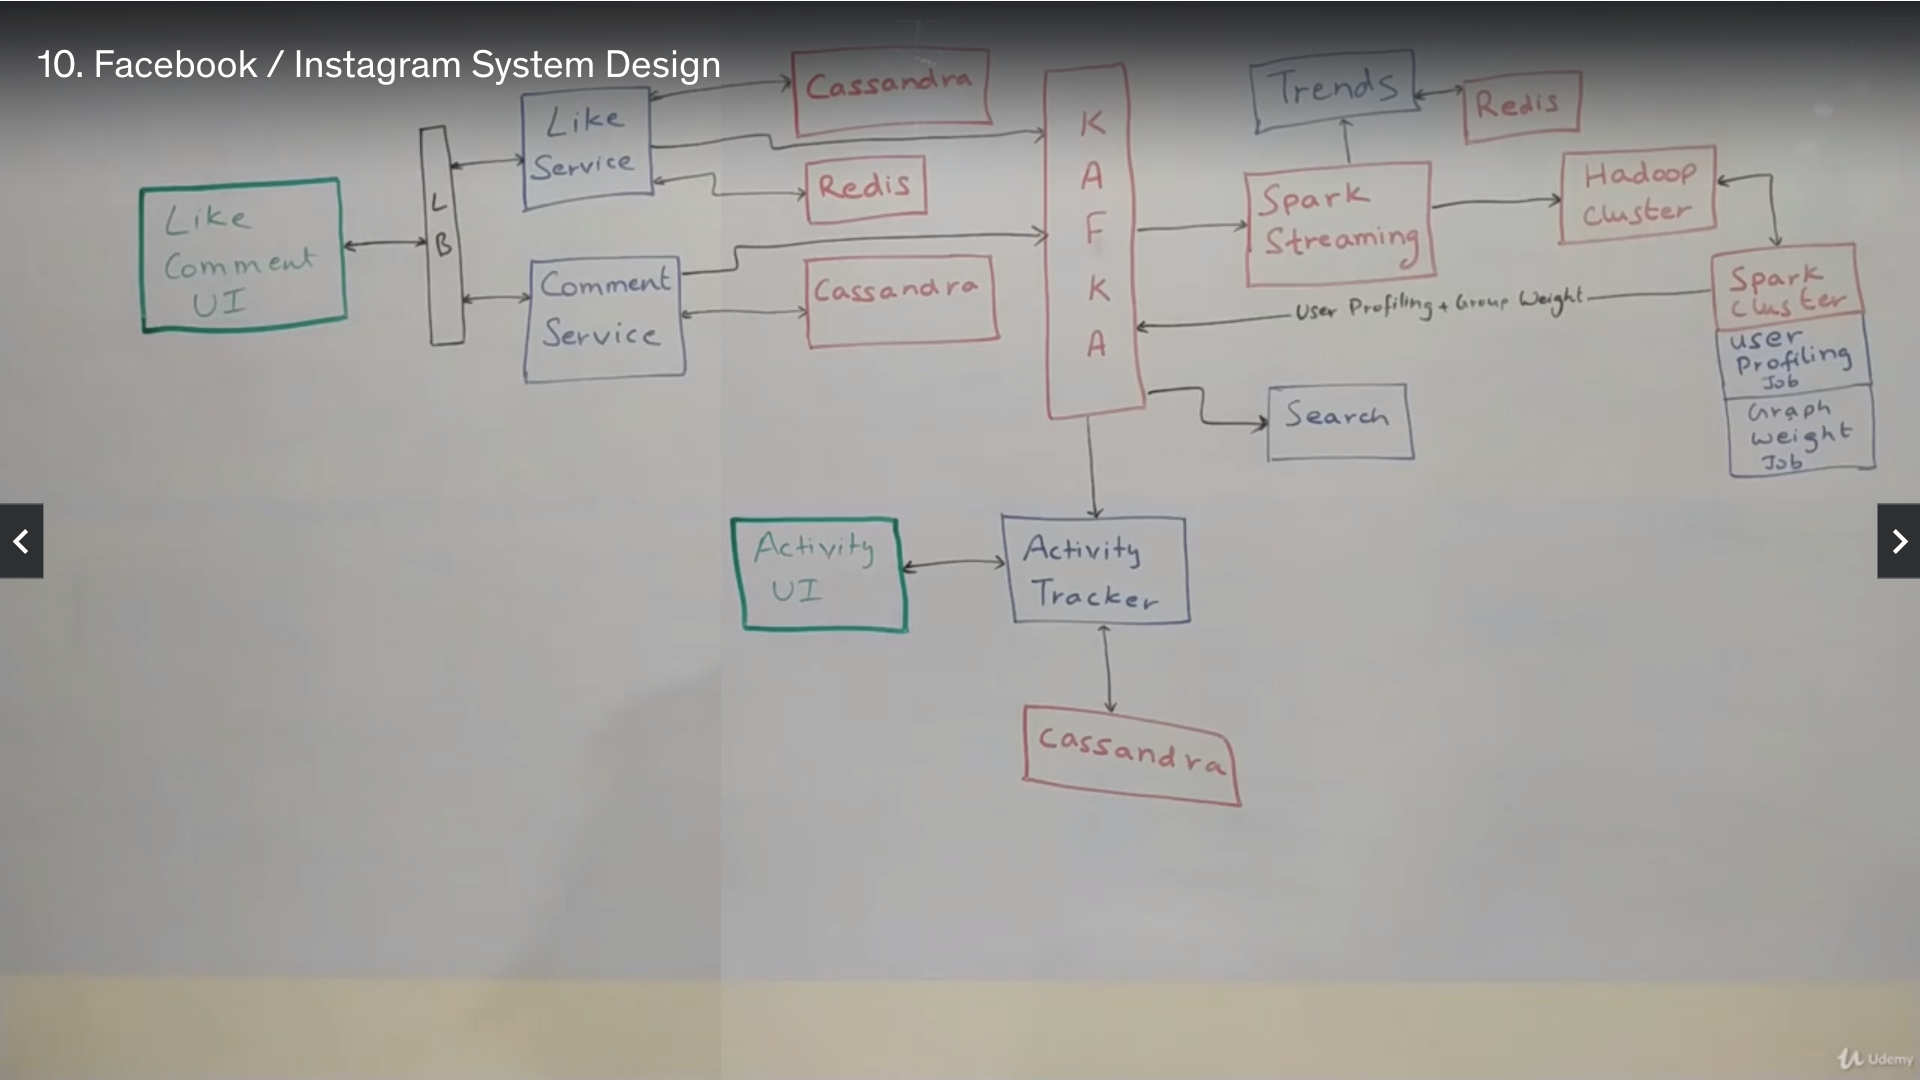 10. Facebook / Instagram System Design
Like
Comment
UI
L
B
Like
Service
Comment
Service
Cassandra
Redis
Cassandra
K
A
F
K
A
Trends
Redis
Spark
Streaming
Hadoop
Cluster
Spark
Cluster
User
Profiling
Job
Graph
Weight
Job
User Profiling + Group Weight
Search
Activity
UI
Activity
Tracker
Cassandra
Udemy